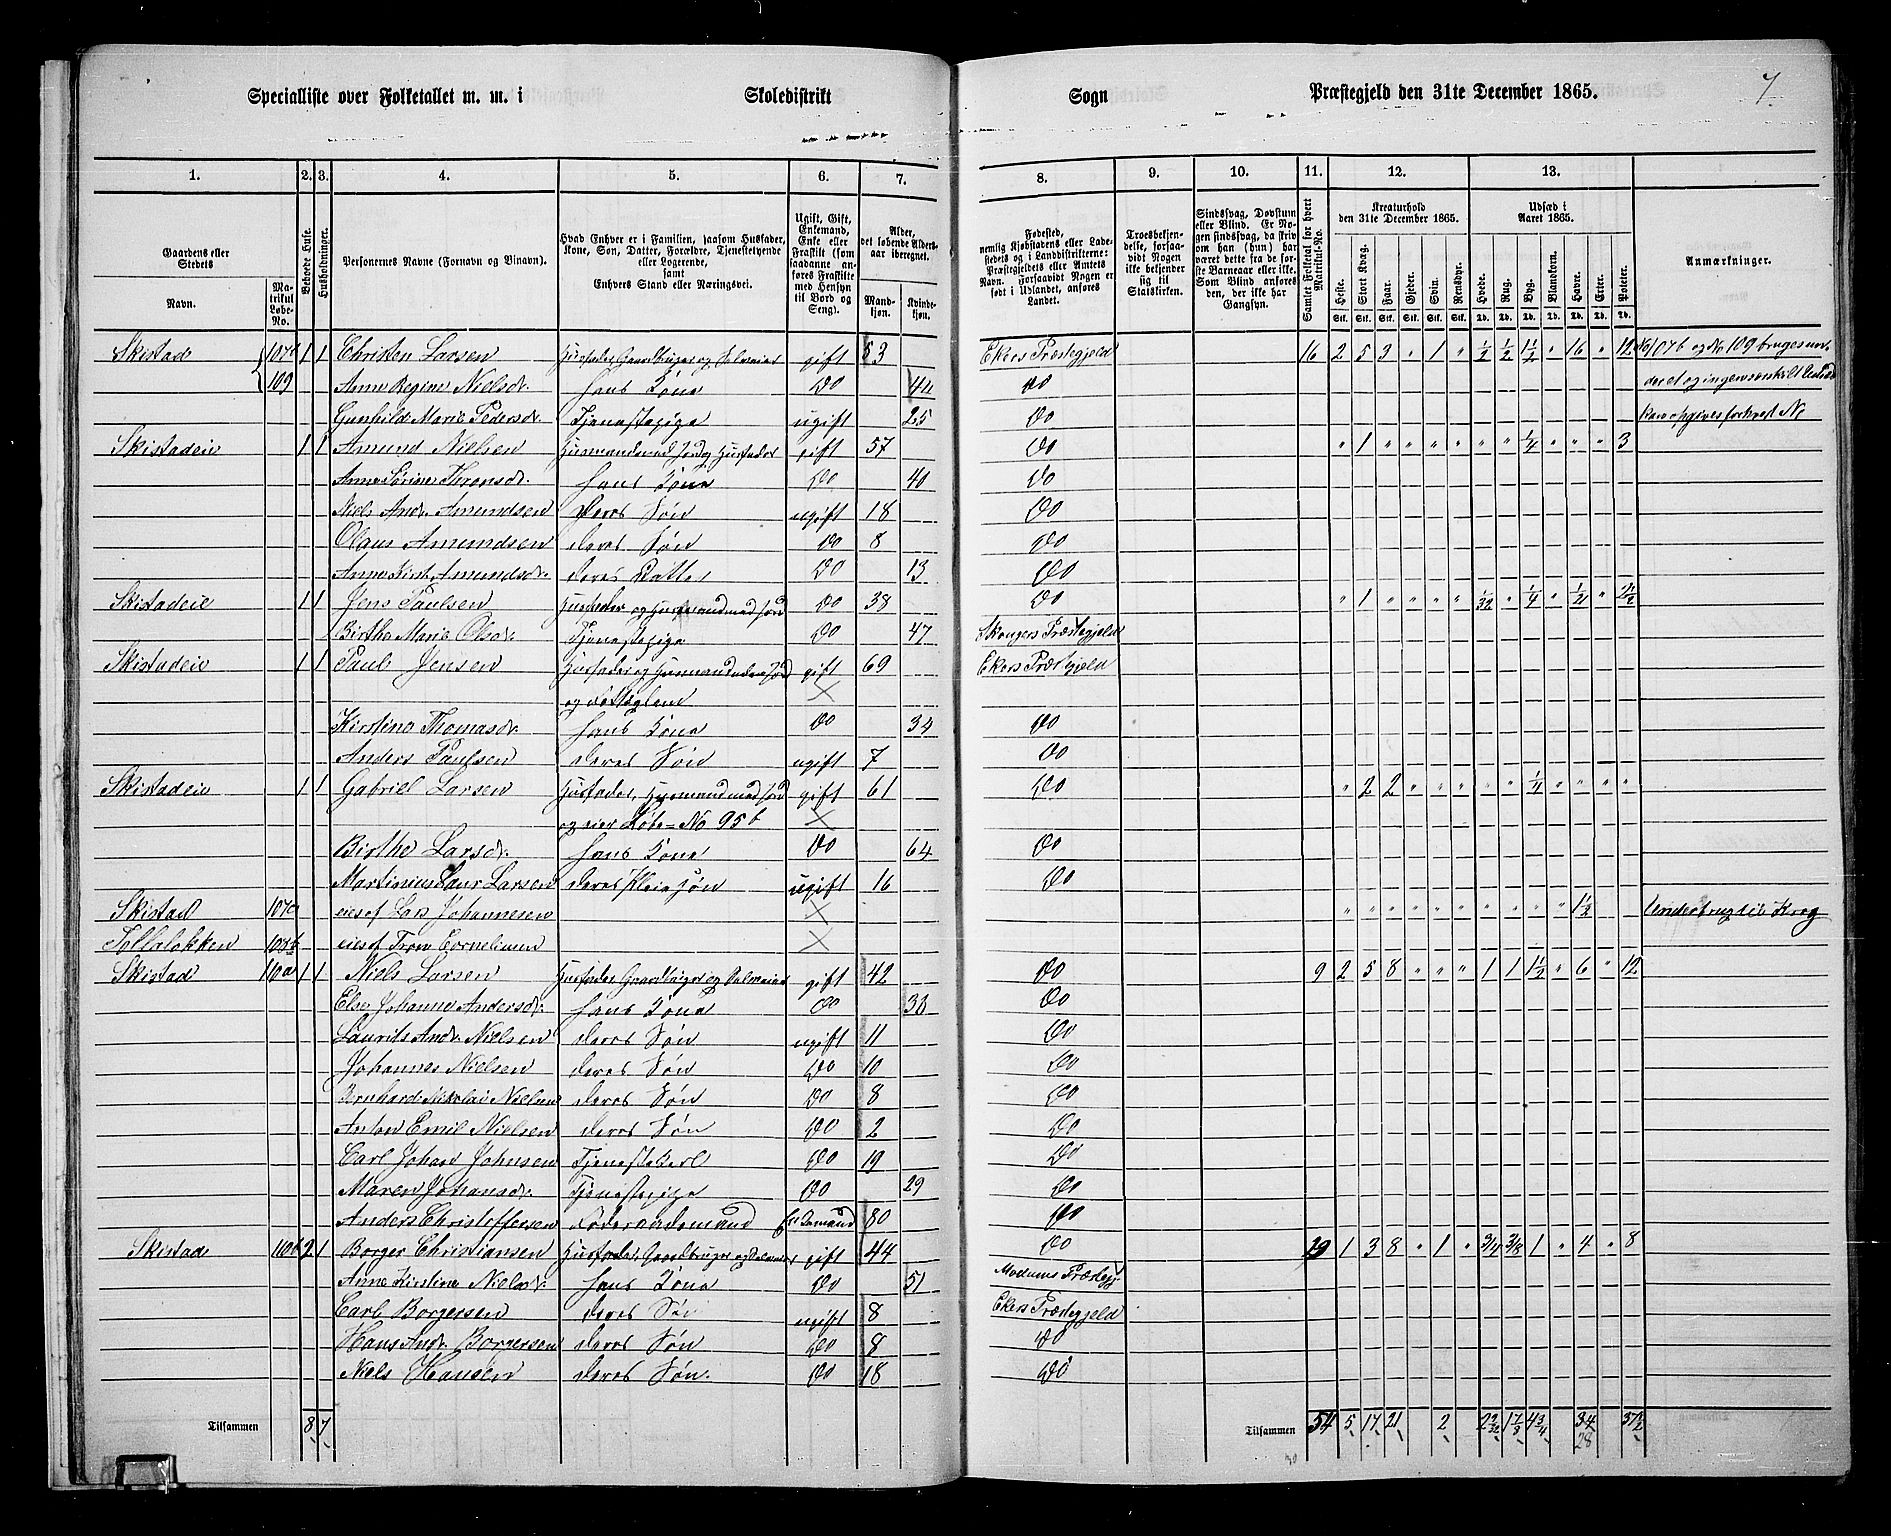 Specialliste over Folketallet m. m. i Skoledistrikt Sogn Præstegjeld den 31te December 1865. 7.
1. 2. 3. 4. 5. 6. 7. 8. 9. 10. 11. 12. 13.
Gaardens eller Stedets Navn. Matrikul Løbe-No. Beboede Huse. Husholdninger. Personernes Navne (Fornavn og Tilnavn).
Hvad Enhver er i Familien, saasom Husfader, Kone, Søn, Datter, Forældre, Tjenestetyende eller Logerende, samt Enhvers Stand eller Næringsvei.
Ugift, Gift, Enkemand, Enke eller Fraskilt (som saadanne anføres Fraskilte med Hensyn til Bord og Seng).
Alder, det løbende Aldersaar iberegnet. Mandkjøn. Kvindekjøn.
Fødested, nemlig Kjøbstadens eller Ladestedets eller i Landdistrikterne: Præstegjeldets eller Amtets Navn. Forsaavidt Nogen er født i Udlandet, anføres Landet.
Troesbekjendelse, forsaavidt Nogen ikke bekjender sig til Statskirken.
Sindssvag, Døvstum eller Blind. Er Nogen sindssvag, da skriv om han (hun) har været dette fra de første Barneaar eller ikke. Som Blind anføres den, der ikke har Gangsyn.
Samlet Folketal for hvert Matrikul-No.
Kreaturhold den 31te December 1865. Heste. Stort Kvæg. Faar. Gjeder. Svin. Rensdyr.
Udsæd i Aaret 1865. Hvede. Rug. Byg. Blandkorn. Havre. Erter. Poteter.
Anmærkninger.
Stk. Stk. Stk. Stk. Stk. Stk. Td. Td. Td. Td. Td. Td. Td.
Skistad 107b 1 1 Christen Larsen Husfader Gaardbruger og Selveier gift 53 Ekers Præstegjeld 16 2 5 3 " 1 " 1/2 1/2 1 1/2 " 16 " 12 No 107b og No 109 bruges un-
109 Anne Regine Nielsdr. hans Kone Do 44 Do
Gunhild Marie Pedersdr. Tjenestepige ugift 25 Do
Skistadeie 1 1 Amund Nielsen Husmand med Jord og Husfader gift 57 Do " 1 " " " " " " 1/4 " " " 3
Anne Sørine Thronsdr. hans Kone Do 40 Do
Niels Andr. Amundsen deres Søn ugift 18 Do
Olaus Amundsen deres Søn Do 8 Do
Anne Kirst. Amundsdr. deres Datter Do 13 Do
Skistadeie 1 1 Jens Paulsen Husfader og Husmand med Jord Do 38 Do " 1 " " " " 1/32 " 1/4 " 1/2 " 2 1/2
Birthe Marie Olsdr. Tjenestepige Do 47 Præstegjeld
Skistadeie 1 1 Paul Jensen Husfader og Husmand uden Jord gift 69 Ekers Præstegjeld
og
Kirstine Thomasdr. hans Kone Do 34 Do
Anders Paulsen deres Søn ugift 7 Do
Skistadeie 1 1 Gabriel Larsen Husfader, Husmand med Jord gift 61 Do " 2 2 " " " " " 1/4 " " " "
og eier Løbe-No 95b
Birthe Larsdr. hans Kone Do 64 Do
Martinius Laur. Larsen deres Pleiesøn ugift 16 Do
Skistad 107c eies af Lars Johannesen " " " " " " " " " " 1 1/2 Underbrug til Krog
108b eies af Tron Cornelimsen
Skistad 110a 1 1 Niels Larsen Husfader Gaardbruger og Selveier gift 42 Do 9 2 5 8 " " " 1 1 1 1/2 " 6 " 12
Else Johanne Andersdr. hans Kone Do 38 Do
Laurits Andr. Nielsen deres Søn ugift 11 Do
Johannes Nielsen deres Søn Do 10 Do
Bernhard Nikolai Nielsen deres Søn Do 8 Do
Anton Emil Nielsen deres Søn Do 2 Do
Carl Johan Johnsen Tjenestekarl Do 19 Do
Maren Johansdr. Tjenestepige Do 29 Do
Anders Christoffersen Føderaadsmand Enkemand 80 Do
Skistad 110b 2 1 Borger Christiansen Husfader, Gaardbruger og Selveier gift 44 Do 19 1 3 8 " 1 " 3/4 3/8 1 " 4 " 8
Anne Kirstine Nielsdr. hans Kone Do 51 Modums Præstegj.
Carl Borgersen deres Søn ugift 8 Ekers Præstegjeld
Hans Andr. Borgersen deres Søn Do 8 Do
Niels Hansen deres Søn. Do 18 Do
Tilsammen 8 7 Tilsammen 54 5 17 21 2 1 7/8 4 3/4 34 37 1/2
28